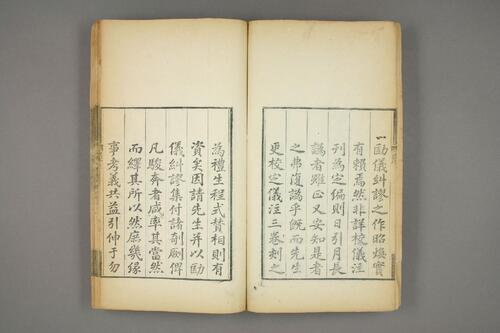 一勵儀糾謬之作昭煥實
有賴焉然非詳梭儀注
刊為定編則日引月長
譌者雖正又安知是者
之弗復譌乎既而先生
更校定儀注三卷刻之
為禮生程式贊相則有
資矣因請先生并以勵
儀糾謬集付諸剞劂俾
凡駿奔者咸率其當然
而繹其所以然庶幾緣
事考義共益引伸于勿